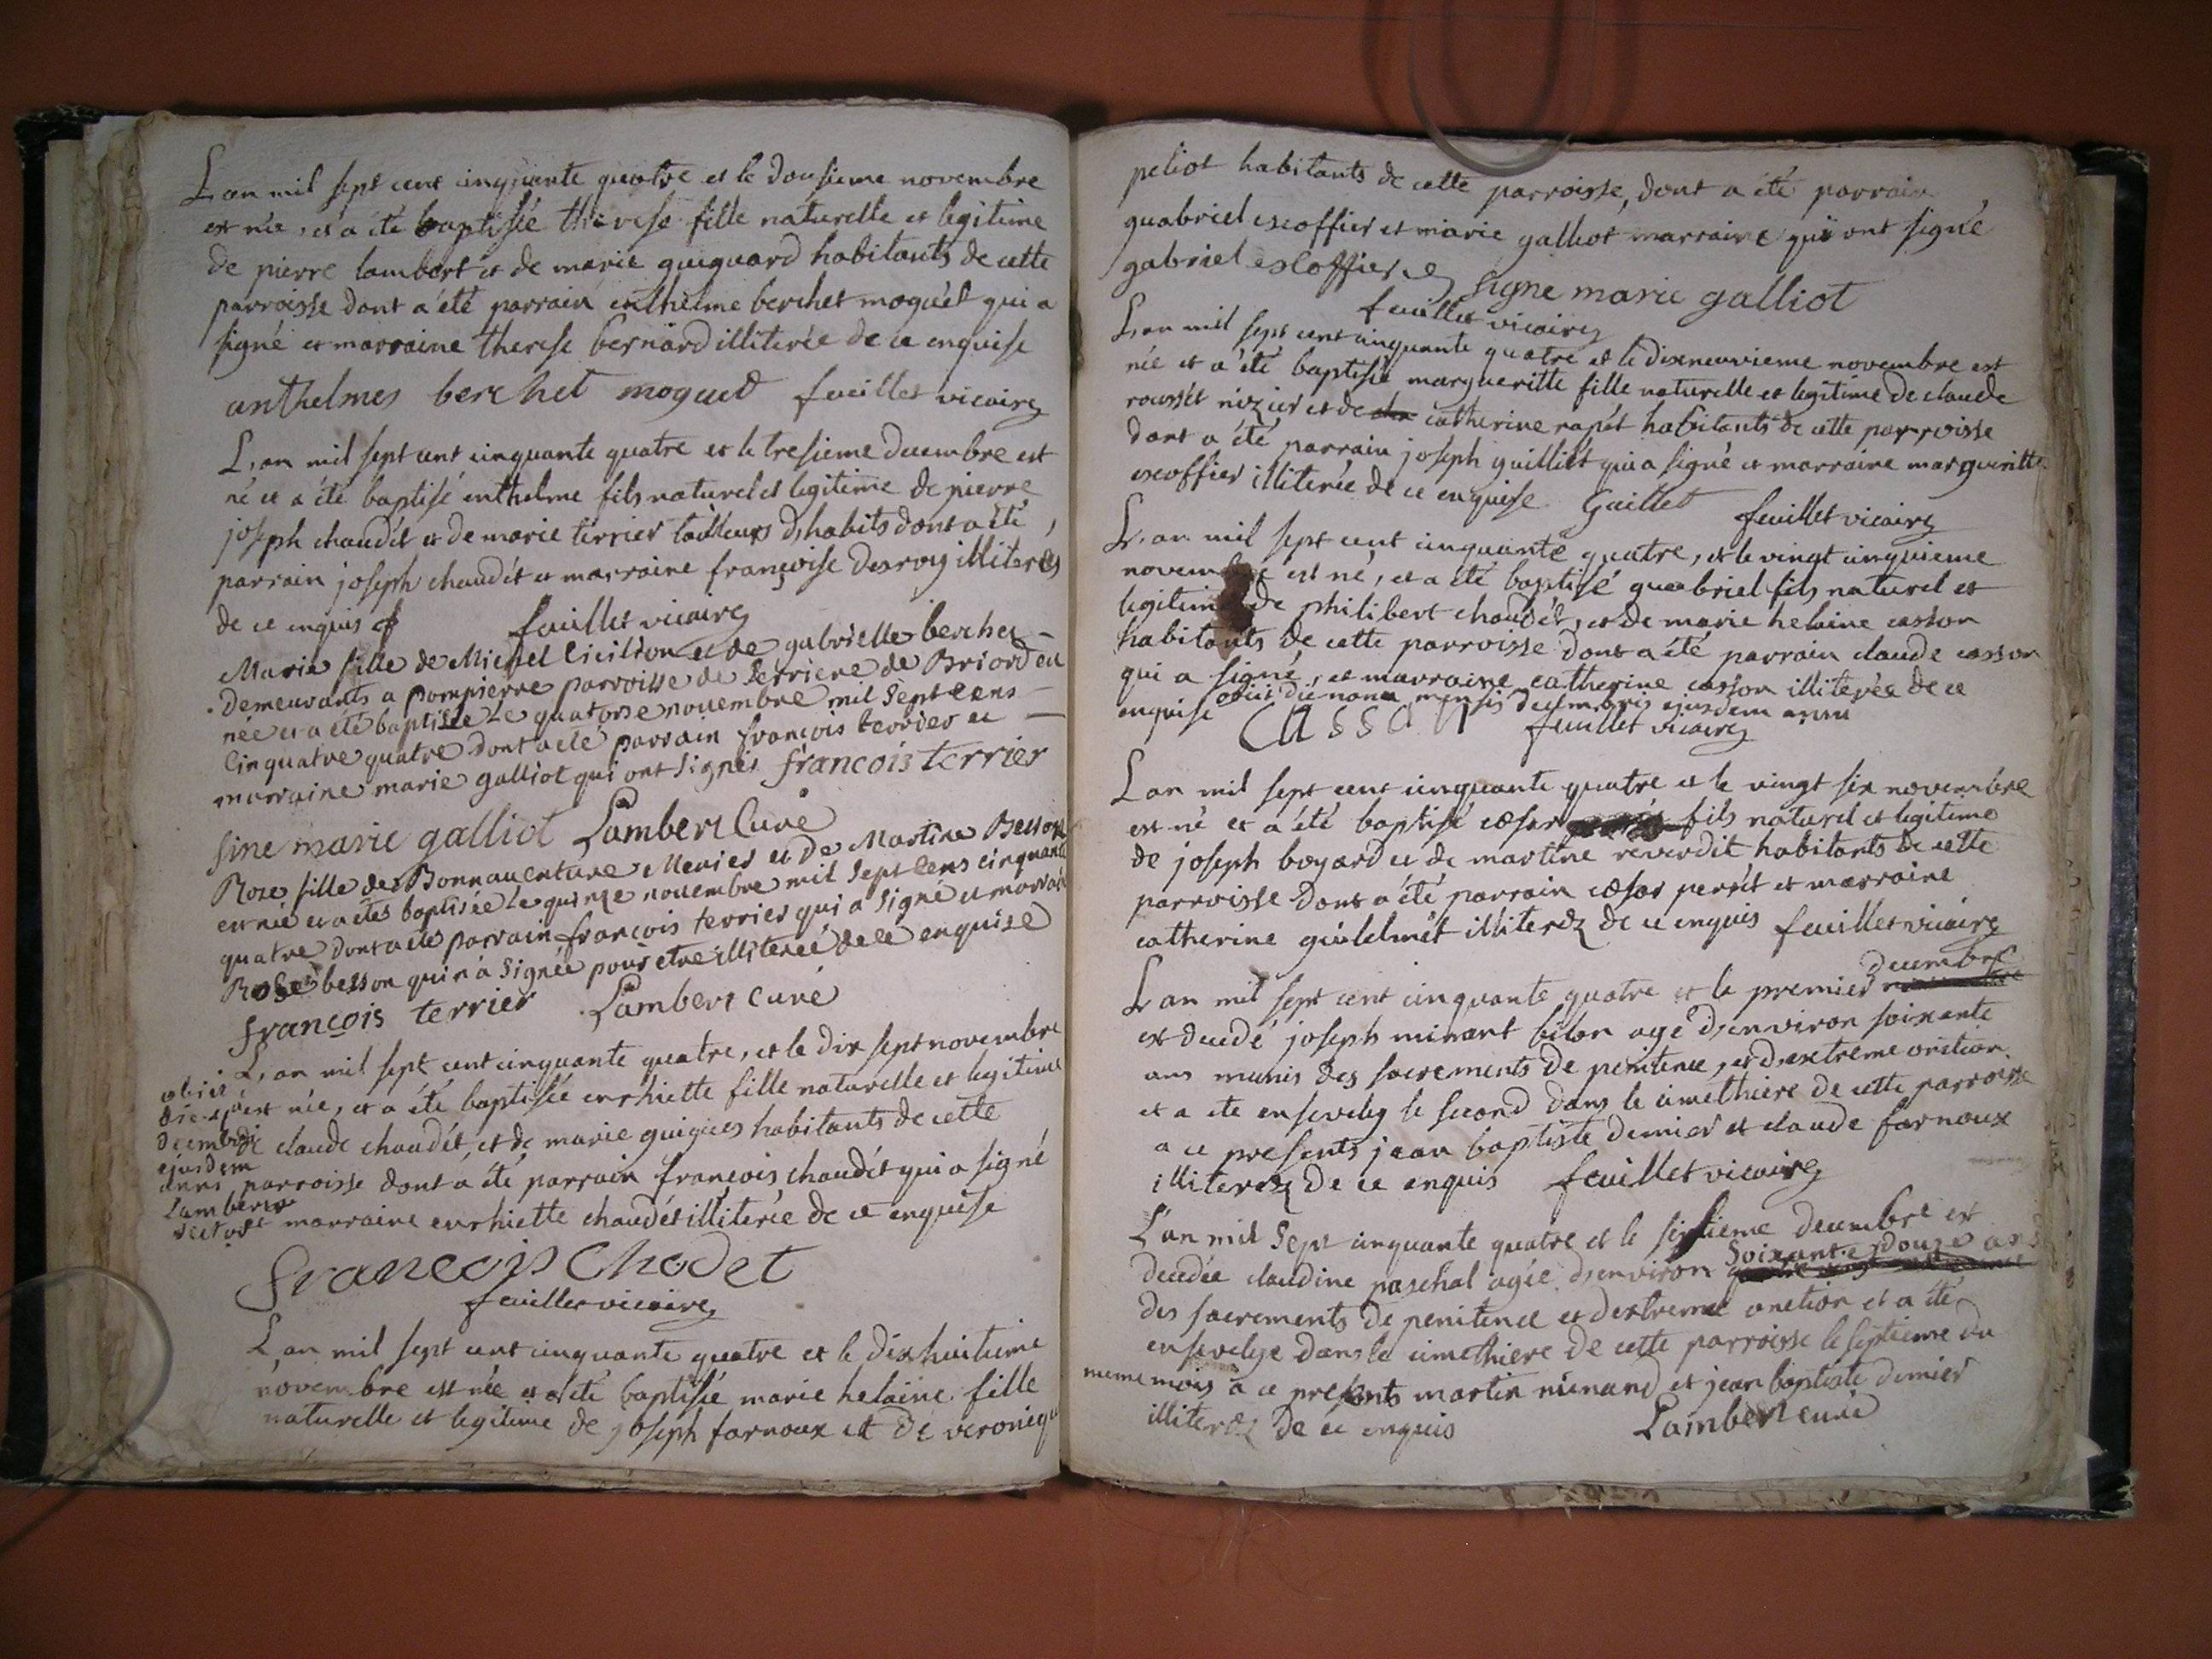 L'an mil sept cent cinquante quatre et le dousieme novembre
est née, et a été baptisée therese fille naturelle et legitime
de pierre lambert et de marie guiguard habitants de cette
parroisse dont a été parrain enthelme berchet moguet qui a
signé et marraine therese bernard illiterée de ce enquise
anthelmes berchet moguet feuillet vicaire
L'an mil sept cent cinquante quatre et le tresieme decembre est
né et a été baptisé enthelme fils naturel et legitime de pierre
joseph chaudét et de marie terrier tailleurs d'habits dont a été
parrain joseph chaudét et marraine françoise desroy illiterés
de ce enquis feuillet vicaire
Marie fille de Michel et de gabrielle berchet
demeurants a pompierre parroisse de Serriere de Briord est
née et a été baptisée le quatorse novembre mil sept cens
cinquatre quatre dont a été parrain françois terrier et
marraine marie galliot qui ont signés françois terrier
sine marie galliot Lambert Curé
Roze fille de Bonnaventure Mevier et de Martine Besson
est née et a étés baptisée le quinze novembre mil sept cens cinquante
quatre dont a été parrain françois terrier qui a signé et marraine
Rose besson qui n'a signée pour etre illiterée de ce enquise
françois terrier Lambert Curé
L'an mil sept cent cinquante quatre, et le dix sept novembre
obiit
die est née, et a été baptisée enrhiette fille naturelle et legitime
decembris de claude chaudét, et de marie guigues habitants de cette
ejusdem
anni parroisse dont a été parrain françois chaudét qui a signé
Lambert
rector et marraine enrhiette chaudét illiterée de ce enquise
françois Chodet
feuillet vicaire
L'an mil sept cent cinquante quatre et le dixhuitieme
novembre est née et a été baptisée marie helaine fille
naturelle et legitime de joseph farnoux et de veronique
peliot habitants de cette parroisse, dont a été parrain
guabriel escoffier et marie galliot marraine qui ont signé
gabriel escoffier signe marie galliot
feuillet vicaire
L'an mil sept cent cinquante quatre et le dixneuvieme novembre est
née et a été baptisée margueritte fille naturelle et legitime de claude
roussét nizier et de catherine rapét habitants de cette parroisse
dont a été parrain joseph guilliét qui a signé et marraine margueritte
escoffier illiterée de ce enquise Guillet feuillet vicaire
L'an mil sept cent cinquante quatre, et le vingt cinquieme
novembre est né, et a été baptisé guabriel fils naturel et
legitime de philibert chaudét, et de marie helaine casson
habitants de cette parroisse dont a été parrain claude casson
qui a signé, et marraine catherine casson illiterée de ce
obiit die nona mensis decembris ejusdem anni
enquise Cassan feuillet vicaire
L'an mil sept cent cinquante quatre et le vingt six novembre
est né et a été baptisé cæsar fils naturel et legitime
de joseph boyard et de martine reverdit habitants de cette
parroisse dont a été parrain cæsar perrét et marraine
catherine guilelmét illiterez de ce enquis feuillet vicaire
decembre
L'an mil sept cent cinquante quatre et le premier
est decedé joseph minant bilon agé d'environ soixante
ans munis des sacrements de penitence, et d'extreme onction
et a été ensevely le second dans le cimethiere de cette parroisse
a ce presents jean baptiste demier et claude farnoux
illiterez de ce enquis feuillet vicaire
L'an mil sept cinquante quatre et le sixieme decembre est
soixante et douze ans
decedée claudine paschal agée d'environ
des sacrements de penitence et d'extreme onction et a été
ensevelye dans le cimethiere de cette parroisse le septieme du
meme mois a ce presents martin minand et jean baptiste demier
illiterez de ce enquis Lambert curé